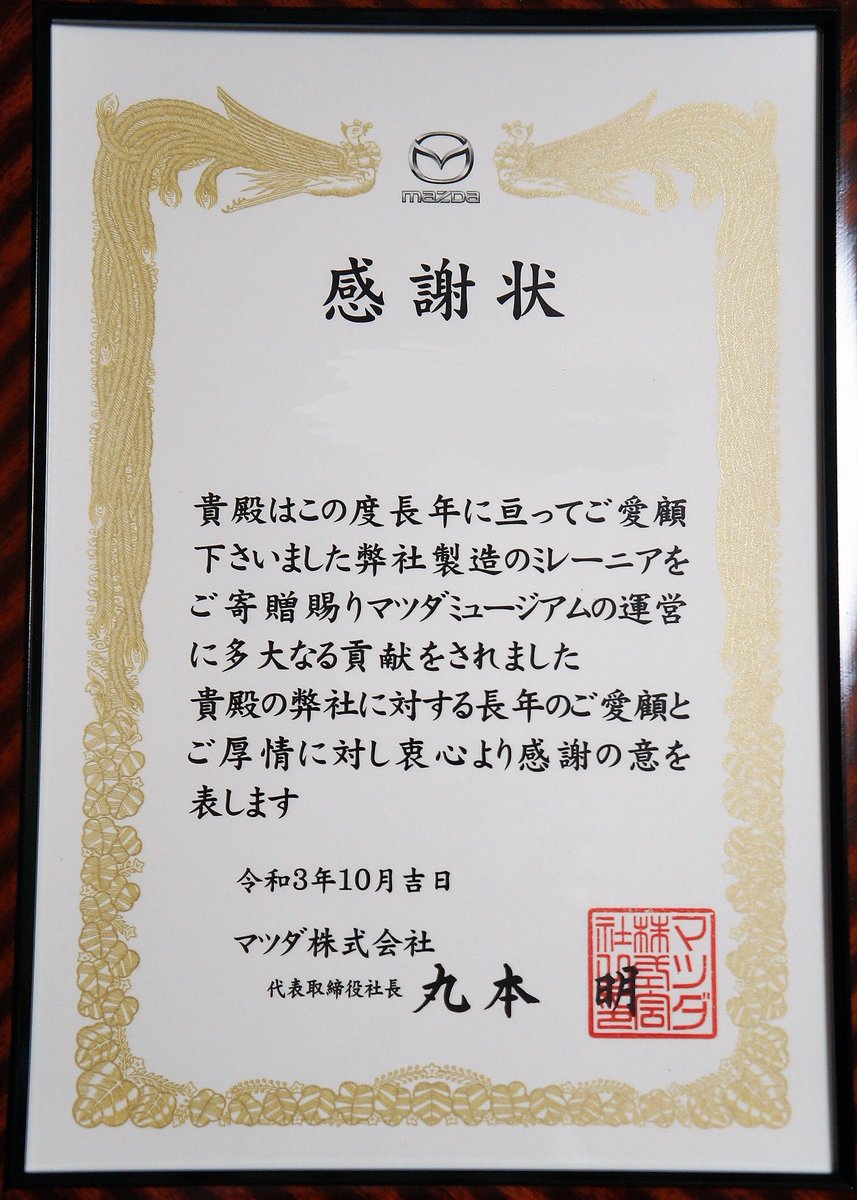 mazda
感謝状
貴殿はこの度長年に亘ってご愛顧
下さいました弊社製造のミレーニアを
ご寄贈賜りマツダミュージアムの運営
に多大なる貢献をされました
貴殿の弊社に対する長年のご愛顧と
ご厚情に対し衷心より感謝の意を
表します
令和3年10月吉日
マツダ株式会社
代表取締役社長 丸本 明
マツダ
株式会
社